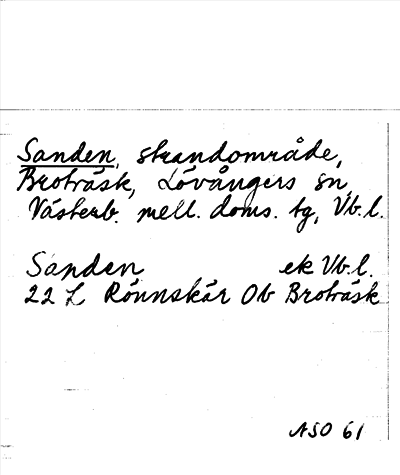 Sanden, strandområde,
Broträsk, Lövångers sn,
Västerb. mell. doms. tg, Vb.l.
Sanden ek Vb.l.
22 L Rönnskär Ob Broträsk
ASO 61